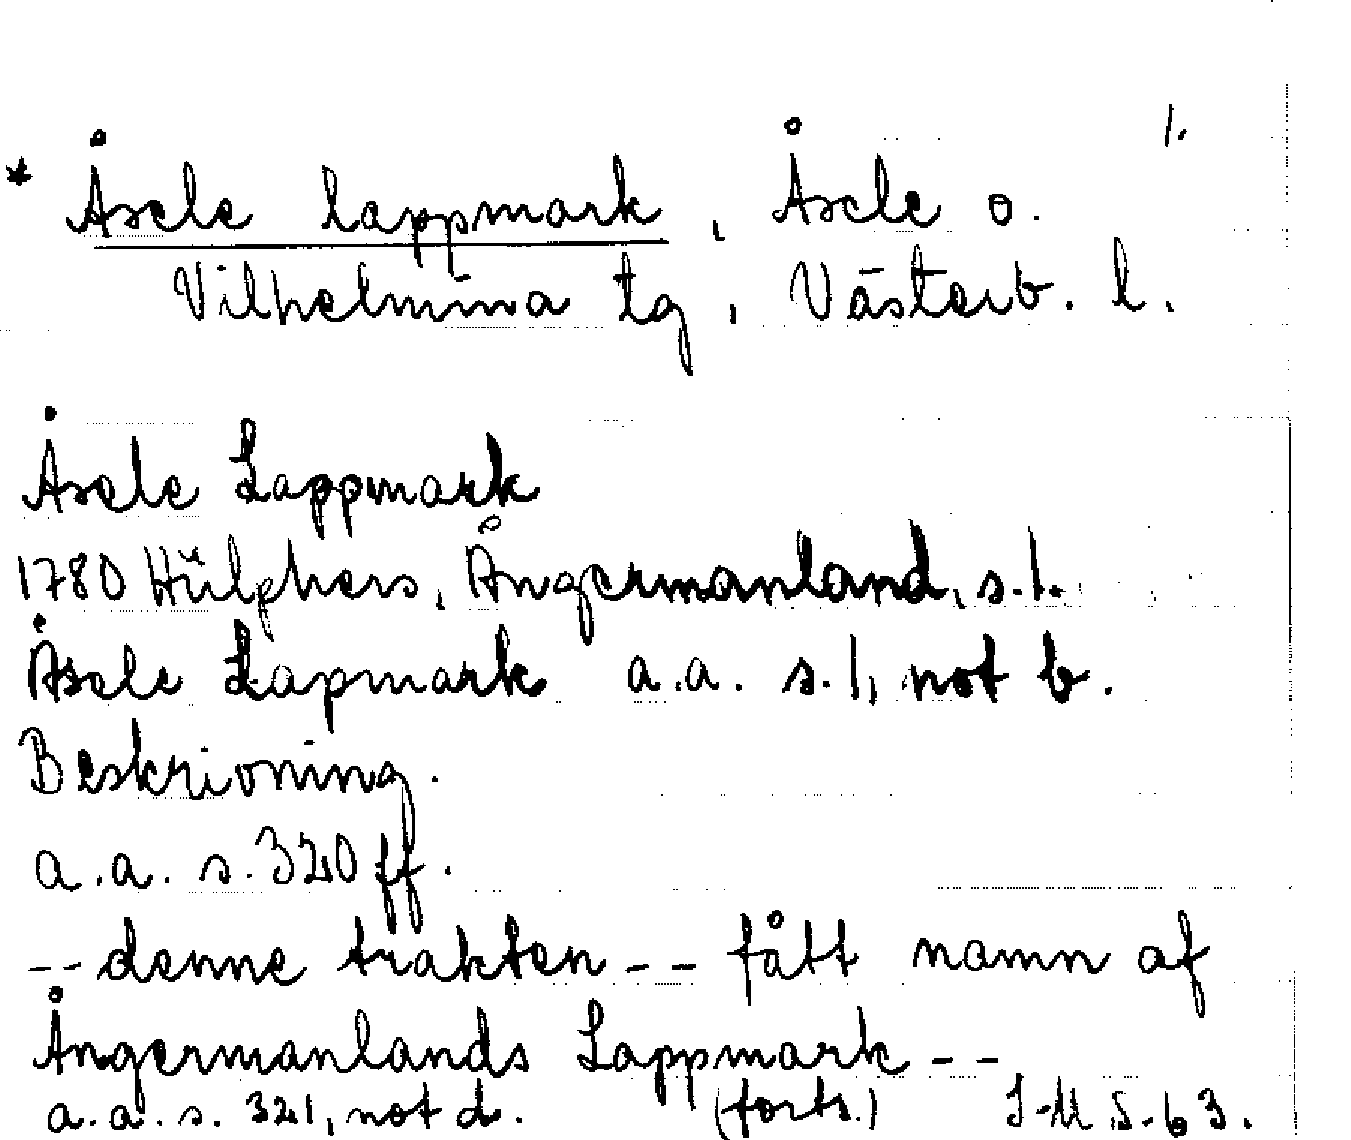 1.
* Åsele lappmark, Åsele o.
Vilhelmina tg, Västerb. l.
Åsele Lappmark
1780 Hülphers, Ångermanland, s.1.
Åsele Lapmark a.a. s.1, not b.
Beskrivning.
a.a. s. 320 ff.
-- denne trakten -- fått namn af
Ångermanlands Lappmark --
a.a. s. 321, not d. (forts.)